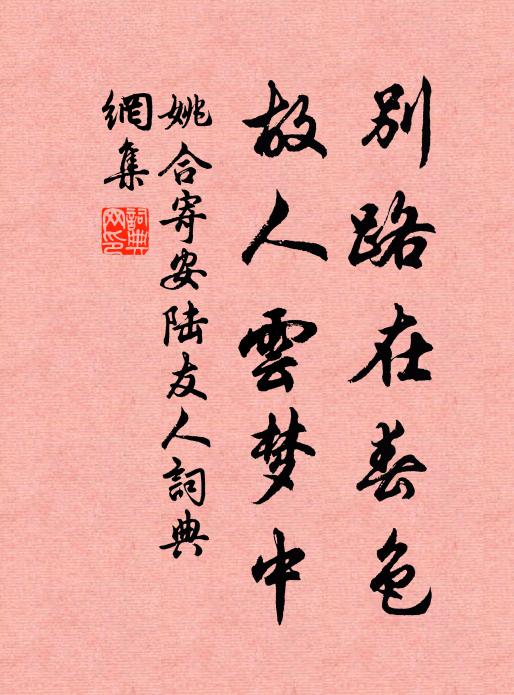 別路在春色
故人雲梦中
姚合寄安陆友人詞典
網集
詞典
网印